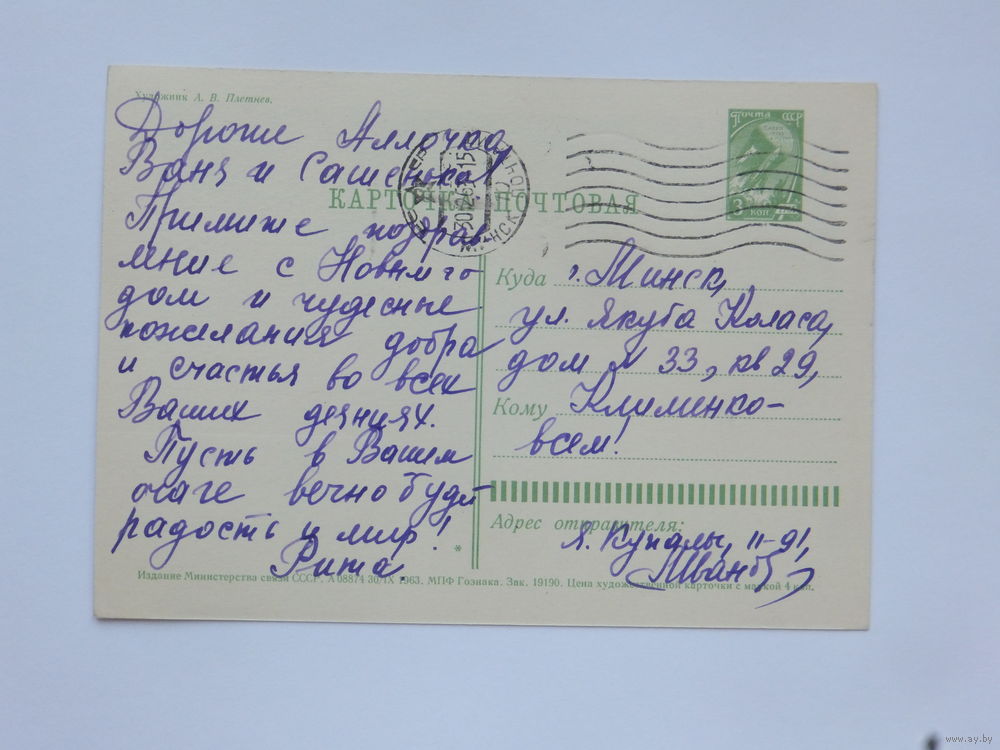 Художник А. В. Плетнев.
Дорогие Аллочка,
Ваня и Сашенька!
Примите поздрав
ление с Новым го
дом и чудесные
пожелания добра
и счастья во всех
Ваших деяниях.
Пусть в Вашем
очаге вечно будет
радость и мир!
Рита.
КАРТОЧКА ПОЧТОВАЯ
Почта СССР
3 коп
МИНСК
Куда г. Минск,
ул. Якуба Коласа,
дом № 33, кв 29,
Кому Клименко-
всем!
Адрес отправителя:
Я. Купалы, 11-91,
*
Издание Министерства связи СССР. А 08874 30/IX 1963. МПФ Гознака. Зак. 19190. Цена художественной карточки с маркой 4 коп.
www.ay.by